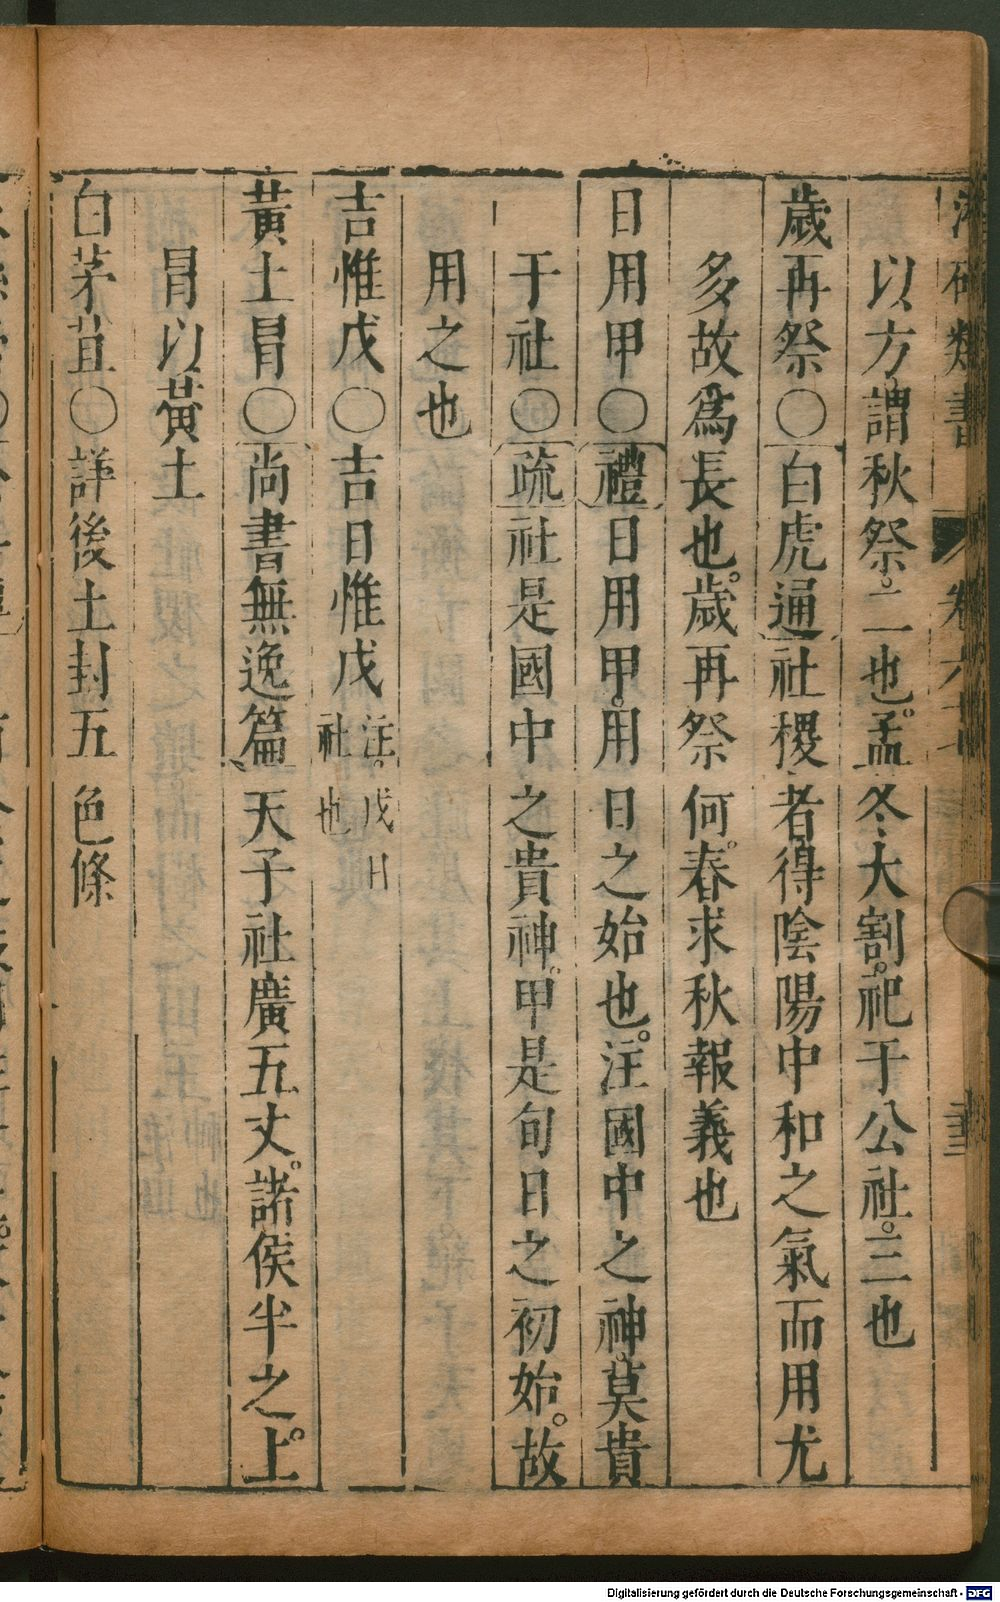 類書
以方謂秋祭二也孟冬大割祀于公社三也
歲再祭○白虎通社稷者得陰陽中和之氣而用尤
多故爲長也歲再祭何春求秋報義也
日用甲○禮日用甲用日之始也注國中之神莫貴
于社○疏社是國中之貴神甲是旬日之初始故
用之也
吉惟戊○吉日惟戊注戊日社也
黃土冒○尚書無逸篇天子社廣五丈諸侯半之上
冒以黃土
白茅苴○詳後土封五色條
Digitalisierung gefördert durch die Deutsche Forschungsgemeinschaft - DFG